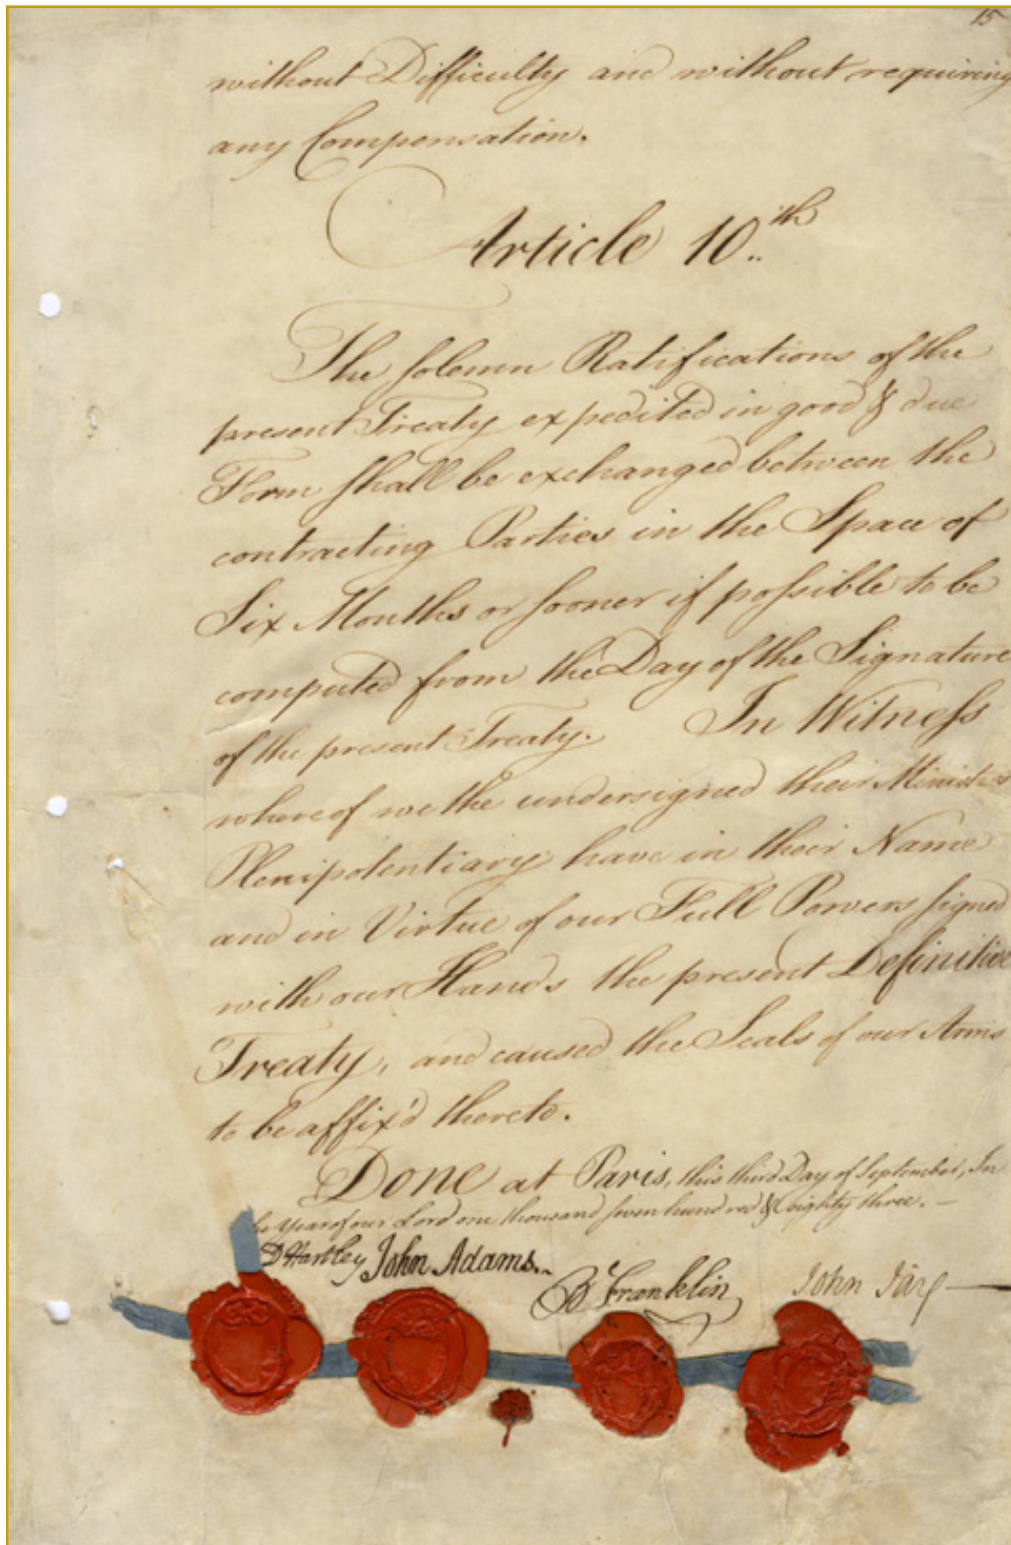 15
without Difficulty and without requiring
any Compensation.
Article 10.th
The solemn Ratifications of the
present Treaty expedited in good & due
Form shall be exchanged between the
contracting Parties in the Space of
Six Months or sooner if possible to be
computed from the Day of the Signature
of the present Treaty. In Witness
whereof we the undersigned their Ministers
Plenipotentiary have in their Name
and in Virtue of our Full Powers signed
with our Hands the present Definitive
Treaty, and caused the Seals of our Arms
to be affix'd thereto.
Done at Paris, this third Day of September, In
he Year of our Lord one thousand seven hundred & eighty three. —
D Hartley John Adams. B Franklin John Jay